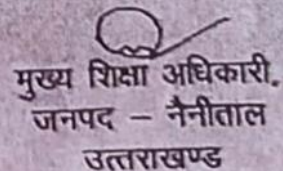 मुख्य शिक्षा अधिकारी.
जनपद – नैनीताल
उत्तराखण्ड